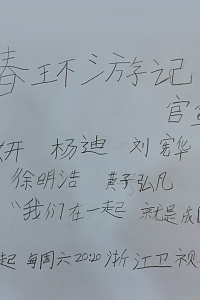 春环游记
官
开 杨迪 刘宪华
徐明浩 黄子弘凡
"我们在一起 就是成团
起 每周六20:20浙江卫视